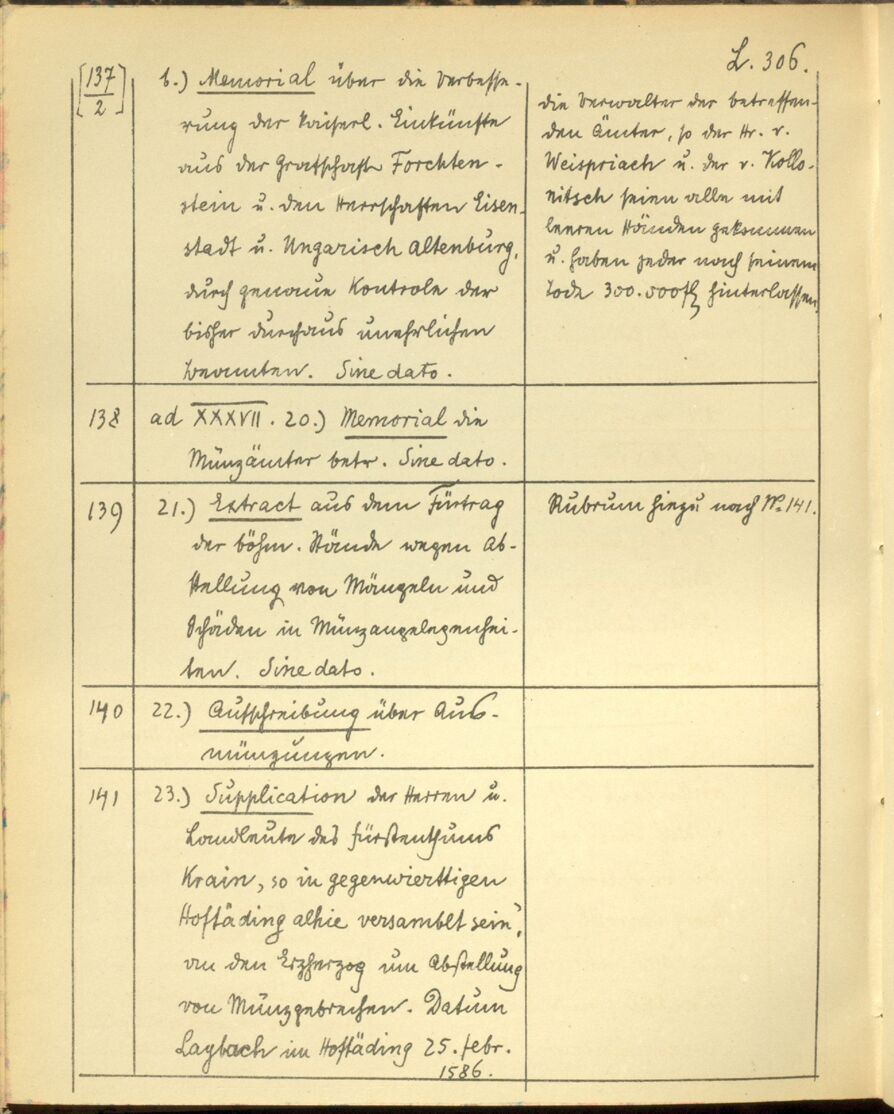 L. 306.
[137/2] b.) Memorial über die Verbesse-
rung der kaiserl. Einkünfte
aus der Grafschaft Forchten-
stein u. den Herrschaften Eisen-
stadt u. Ungarisch Altenburg,
durch genaue Kontrole der
bisher durchaus unehrlichen
Beamten. Sine dato.
die Verwalter der betreffen-
den Ämter, so der Hr. v.
Weispriach u. der v. Kollo-
nitsch seien alle mit
leeren Händen gekommen
u. haben jeder nach seinem
Tode 300.000 fl hinterlassen.
138 ad XXXVII. 20.) Memorial die
Münzämter betr. Sine dato.
139 21.) Extract aus dem Fürtrag
der böhm. Stände wegen Ab-
stellung von Mängeln und
Schäden in Münzangelegenhei-
ten. Sine dato.
Rubrum hiezu nach No. 141.
140 22.) Aufschreibung über Aus-
münzungen.
141 23.) Supplication der Herren u.
Landleute des Fürstenthums
Krain, so in gegenwierttigen
Hoftäding alhie versamblt sein",
an den Erzherzog um Abstellung
von Münzgebrechen. Datum
Laybach im Hoftäding 25. febr.
1586.